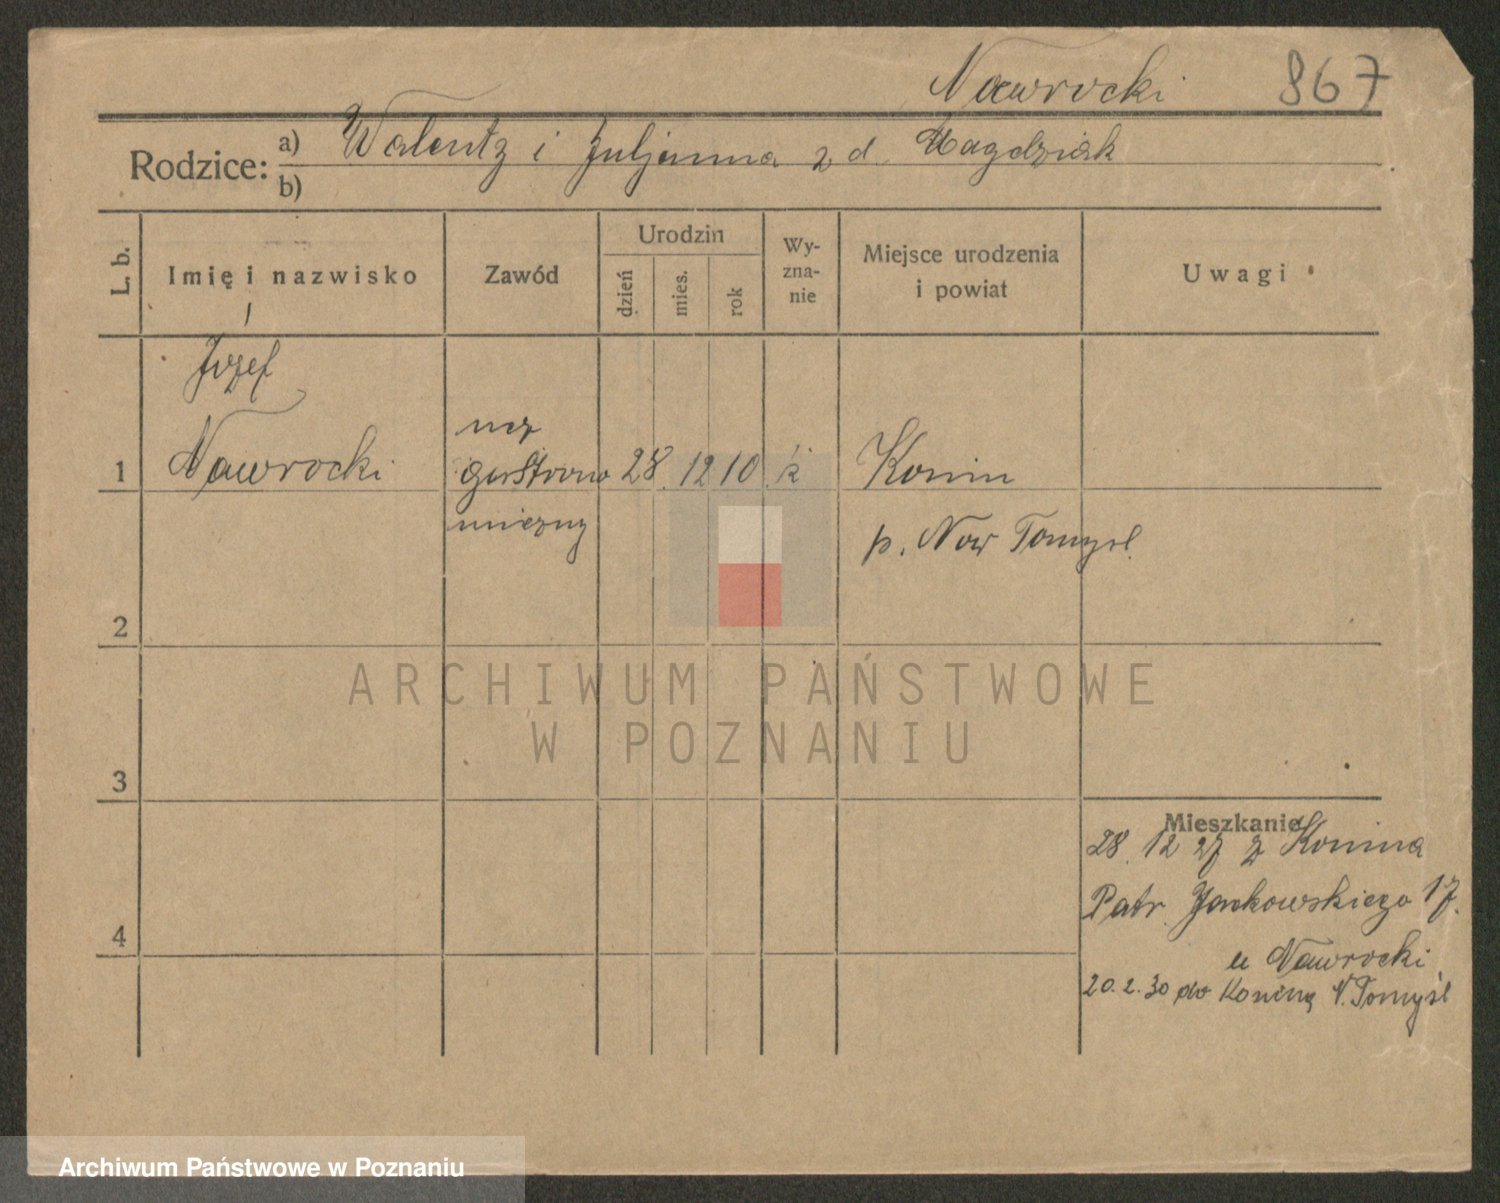 Nawrocki 867
Rodzice: a) Walenty i Juljanna z d. Magdziak
b)
L. b. Imię i nazwisko Zawód Urodzin dzień mies. rok Wy-zna-nie Miejsce urodzenia i powiat Uwagi
Józef
1 Nawrocki ucz gastrono 28. 12 10 k Konin
miczny p. Now Tomysl.
2
3
Mieszkanie
28. 12 27 z Konina
Patr. Jackowskiego 17.
4
u Nawrocki
20.2.30 do Konina N. Tomyśl
ARCHIWUM PAŃSTWOWE
W POZNANIU
Archiwum Państwowe w Poznaniu